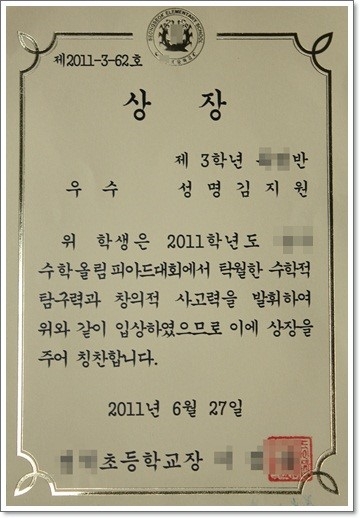 ELEMENTARY SCHOOL
제2011-3-62호
상 장
제 3학년 반
우 수 성명 김 지 원
위 학생은 2011학년도
수학올림피아드대회에서 탁월한 수학적
탐구력과 창의적 사고력을 발휘하여
위와 같이 입상하였으므로 이에 상장을
주어 칭찬합니다.
2011년 6월 27일
초등학교장